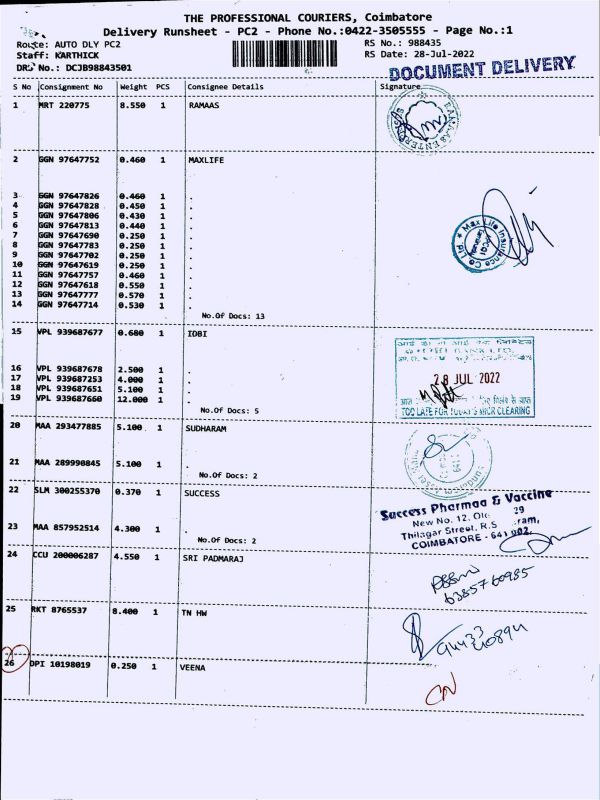 THE PROFESSIONAL COURIERS, Coimbatore
Delivery Runsheet - PC2 - Phone No.:0422-3505555 - Page No.:1
Route: AUTO DLY PC2
RS No.: 988435
Staff: KARTHICK
RS Date: 28-Jul-2022
DRS No.: DCJB98843501
DOCUMENT DELIVERY
S No Consignment No Weight PCS Consignee Details Signature
1 MRT 220775 8.550 1 RAMAAS
2 GGN 97647752 0.460 1 MAXLIFE
3 GGN 97647826 0.460 1 .
4 GGN 97647828 0.450 1 .
5 GGN 97647806 0.430 1 .
6 GGN 97647813 0.440 1 .
7 GGN 97647690 0.250 1 .
8 GGN 97647783 0.250 1 .
9 GGN 97647702 0.250 1 .
10 GGN 97647619 0.250 1 .
11 GGN 97647757 0.460 1 .
12 GGN 97647618 0.550 1 .
13 GGN 97647777 0.570 1 .
14 GGN 97647714 0.530 1 .
Max Life Insurance Co
No.Of Docs: 13
15 VPL 939687677 0.680 1 IDBI
16 VPL 939687678 2.500 1 .
17 VPL 939687253 4.000 1 .
18 VPL 939687651 5.100 1 .
19 VPL 939687660 12.000 1 .
28 JUL 2022
TOO LATE FOR TODAY'S MICR CLEARING
No.Of Docs: 5
20 MAA 293477885 5.100 1 SUDHARAM
21 MAA 289990845 5.100 1 .
No.Of Docs: 2
22 SLM 300255370 0.370 1 SUCCESS
Success Pharmaa & Vaccine
New No. 12, 29
Thilagar Street, R.S ram,
COIMBATORE - 641 002.
23 MAA 857952514 4.300 1 .
No.Of Docs: 2
24 CCU 200006287 4.550 1 SRI PADMARAJ
6385760985
25 RKT 8765537 8.400 1 TN HW
26 DPI 10198019 0.250 1 VEENA